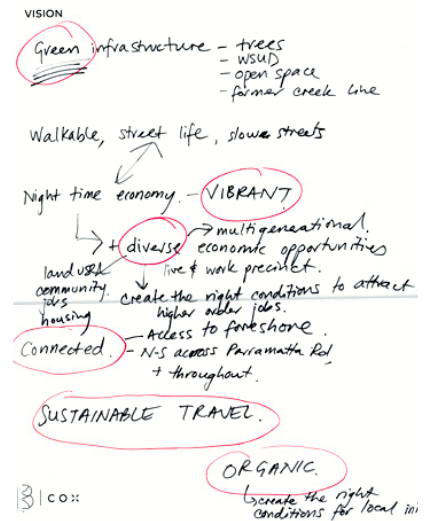 VISION
Green infrastructure - trees
- WSUD
- open space
- former creek line
Walkable, street life, slower streets
Night time economy. - VIBRANT
+ diverse → multigenerational.
economic opportunities
live & work precinct.
land uses
community.
jobs
housing
create the right conditions to attract
higher order jobs.
Connected. - Access to foreshore.
- N-S across Parramatta Rd
+ throughout.
SUSTAINABLE TRAVEL.
ORGANIC.
create the right
conditions for local ini
COX